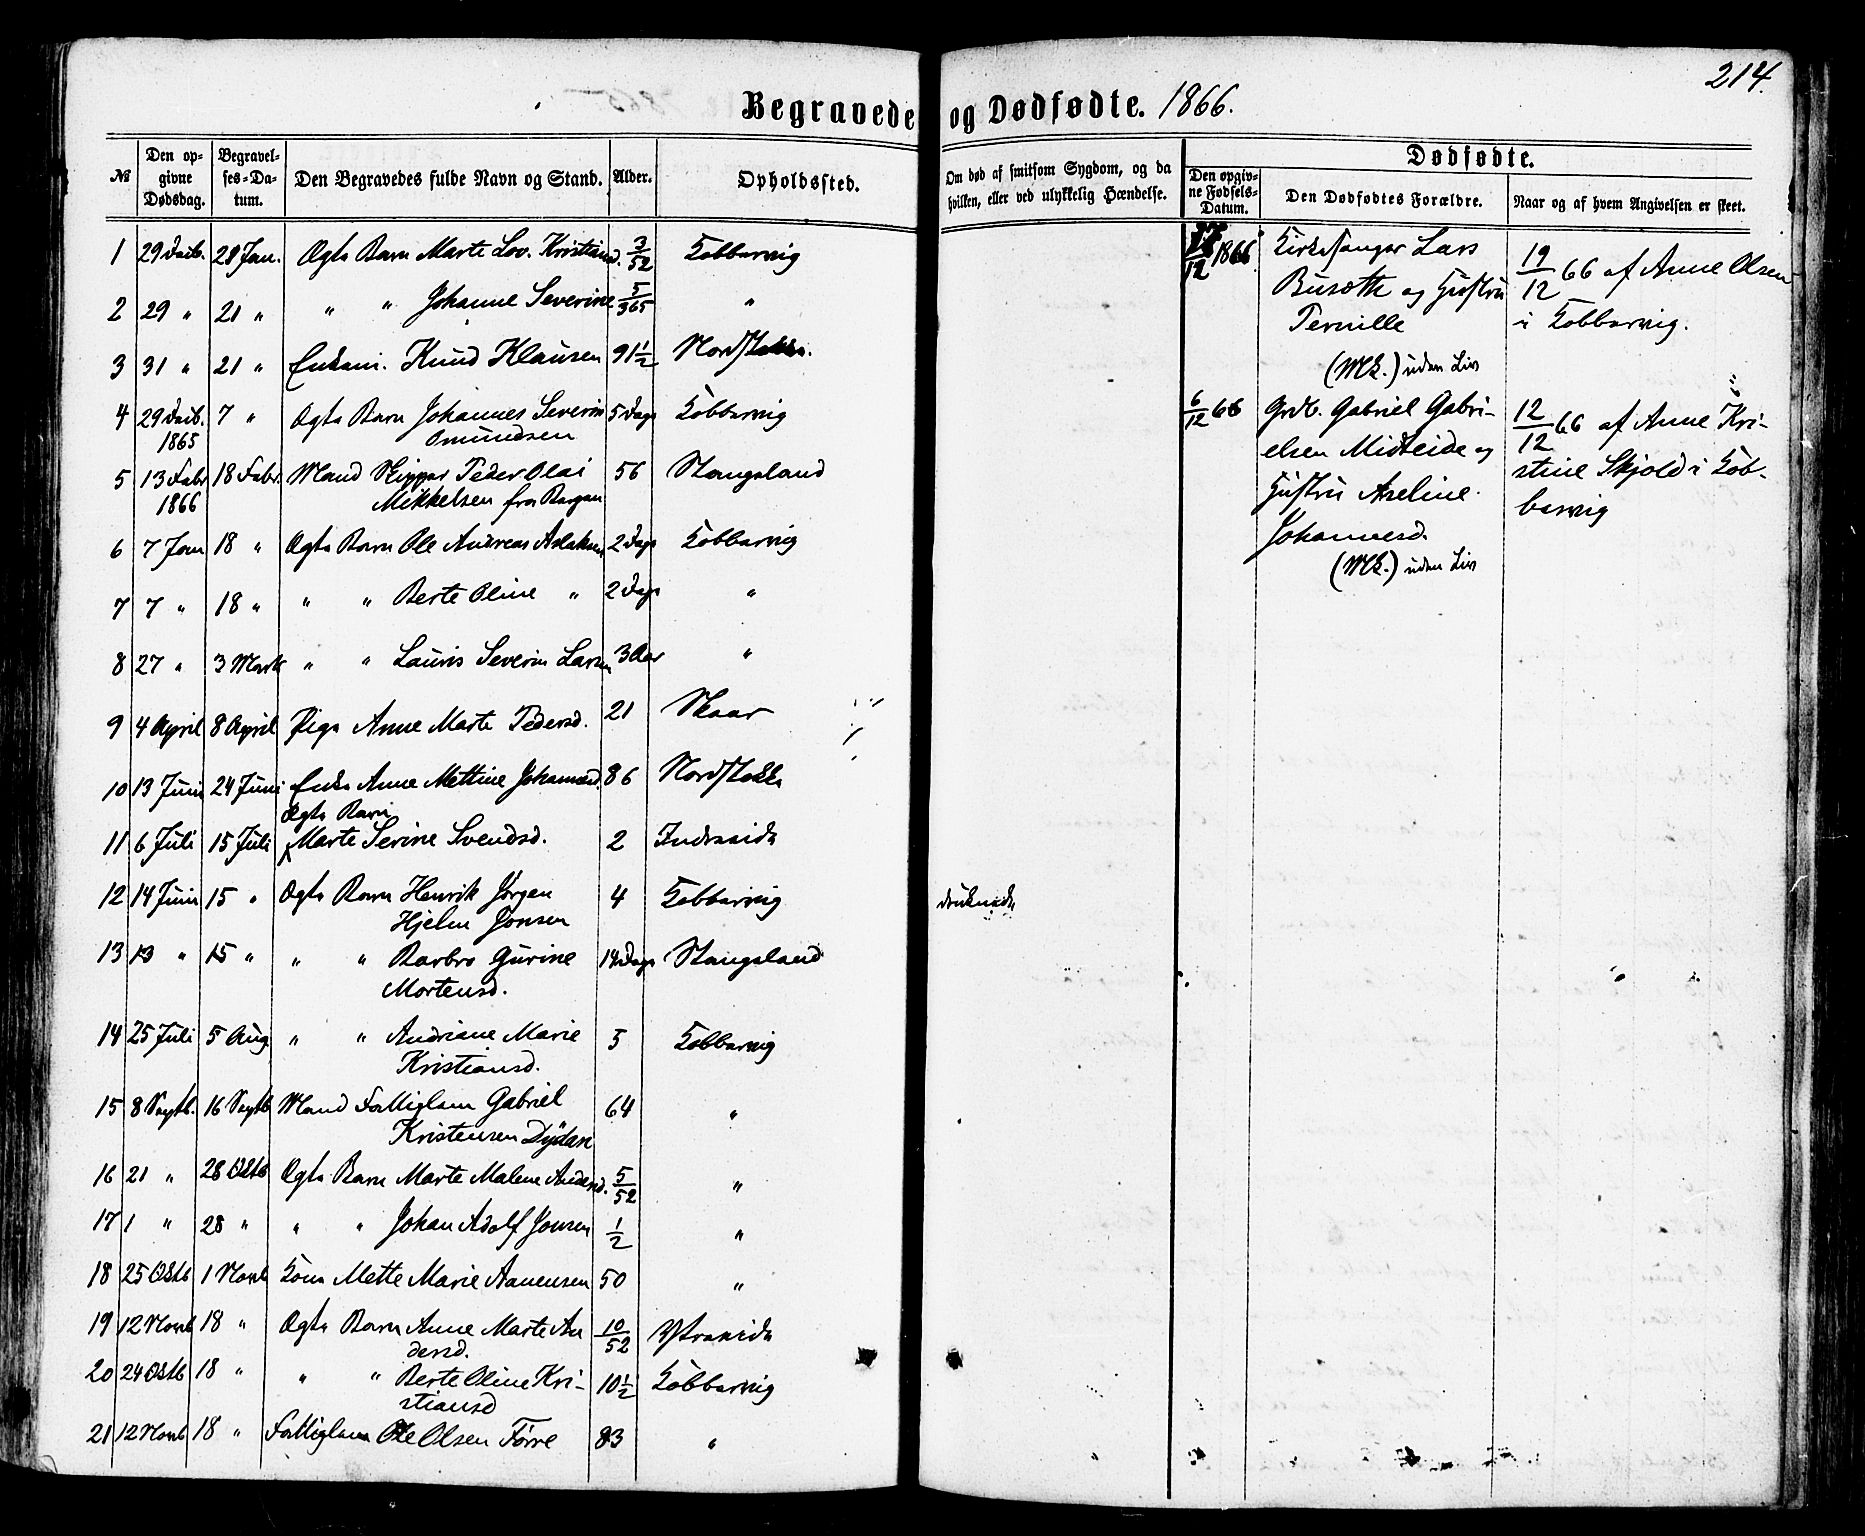 214.
Begravede og Dødfødte. 1866.
№
Den opgivne Dødsdag.
Begravelses-Datum.
Den Begravedes fulde Navn og Stand.
Alder.
Opholdssted.
Om død af smitsom Sygdom, og da hvilken, eller ved ulykkelig Hændelse.
Dødfødte.
Den opgivne Fødsels-Datum.
Den Dødfødtes Forældre.
Naar og af hvem Angivelsen er skeet.
1 29 Decb. 28 Jan. Ægte Barn Marte Lov. Kristiansd. 3/52 Kobbervig
2 29 " 21 " " " Johanne Severine 5/365 "
3 31 " 21 " Enkem. Knud Klausen 91 1/2 Nordstokke.
4 29 Decb. 7 " Ægte Barn Johannes Severin 5 Dage Kobbervig
1865 Omundsen
5 13 Febr 18 Febr. Mand Skipper Peder Olai 56 Stangeland
1866 Mikkelsen fra Bergen
6 7 Jan 18 " Ægte Barn Ole Andreas Aslaksen 2 Dage Kobbervig
7 7 " 18 " " " Berte Oline " 2 Dage "
8 27 " 3 Marts " " Lauris Severin Larsen 3 Aar "
9 4 April 8 April Pige Anne Marte Pedersd. 21 Skaar
10 13 Juni 24 Juni Enke Anne Mettine Johannesd. 86 Nordstokke
Ægte Barn
11 6 Juli 15 Juli Marte Serine Svendsd. 2 Indreeide
12 14 Juni 15 " Ægte Barn Henrik Jørgen 4 Kobbervig druknede
Hjelm Jonsen
13 13 " 15 " " " Barbro Gurine 14 Dage Stangeland
Mortensd.
14 25 Juli 5 Aug " " Andriane Marie 5 Kobbervig
Kristiansd.
15 8 Septb. 16 Septb Mand Fattiglem Gabriel 64 "
Kristensen
16 21 " 28 Oktb Ægte Barn Marte Malene Andersd. 5/52 "
17 1 " 28 " " " Johan Adolf Jonsen 1/2 "
18 25 Oktb 1 Novb Kone Mette Marie Aanensen 50 "
19 12 Novb 18 " Ægte Barn Anne Marte An 10/52 Ytreeide
dersd.
20 24 Oktb 18 " " " Berte Oline Kri- 10 1/2 Kobbervig
stiansd
21 12 Novb 18 " Fattiglem Ole Olsen Førre 83 "
/12 1866 Kirkesanger Lars
Busæth og Hustru
Pernille
(Mk.) uden Liv
19/12 66 af Anne Olsen
i Kobbervig.
6/12 66 Grdb. Gabriel Gabri-
elsen Midteide og
Hustru Axeline
Johannesd.
(Mk.) uden Liv
12/12 66 af Anne Kri-
stine Skjold i Kob-
bervig